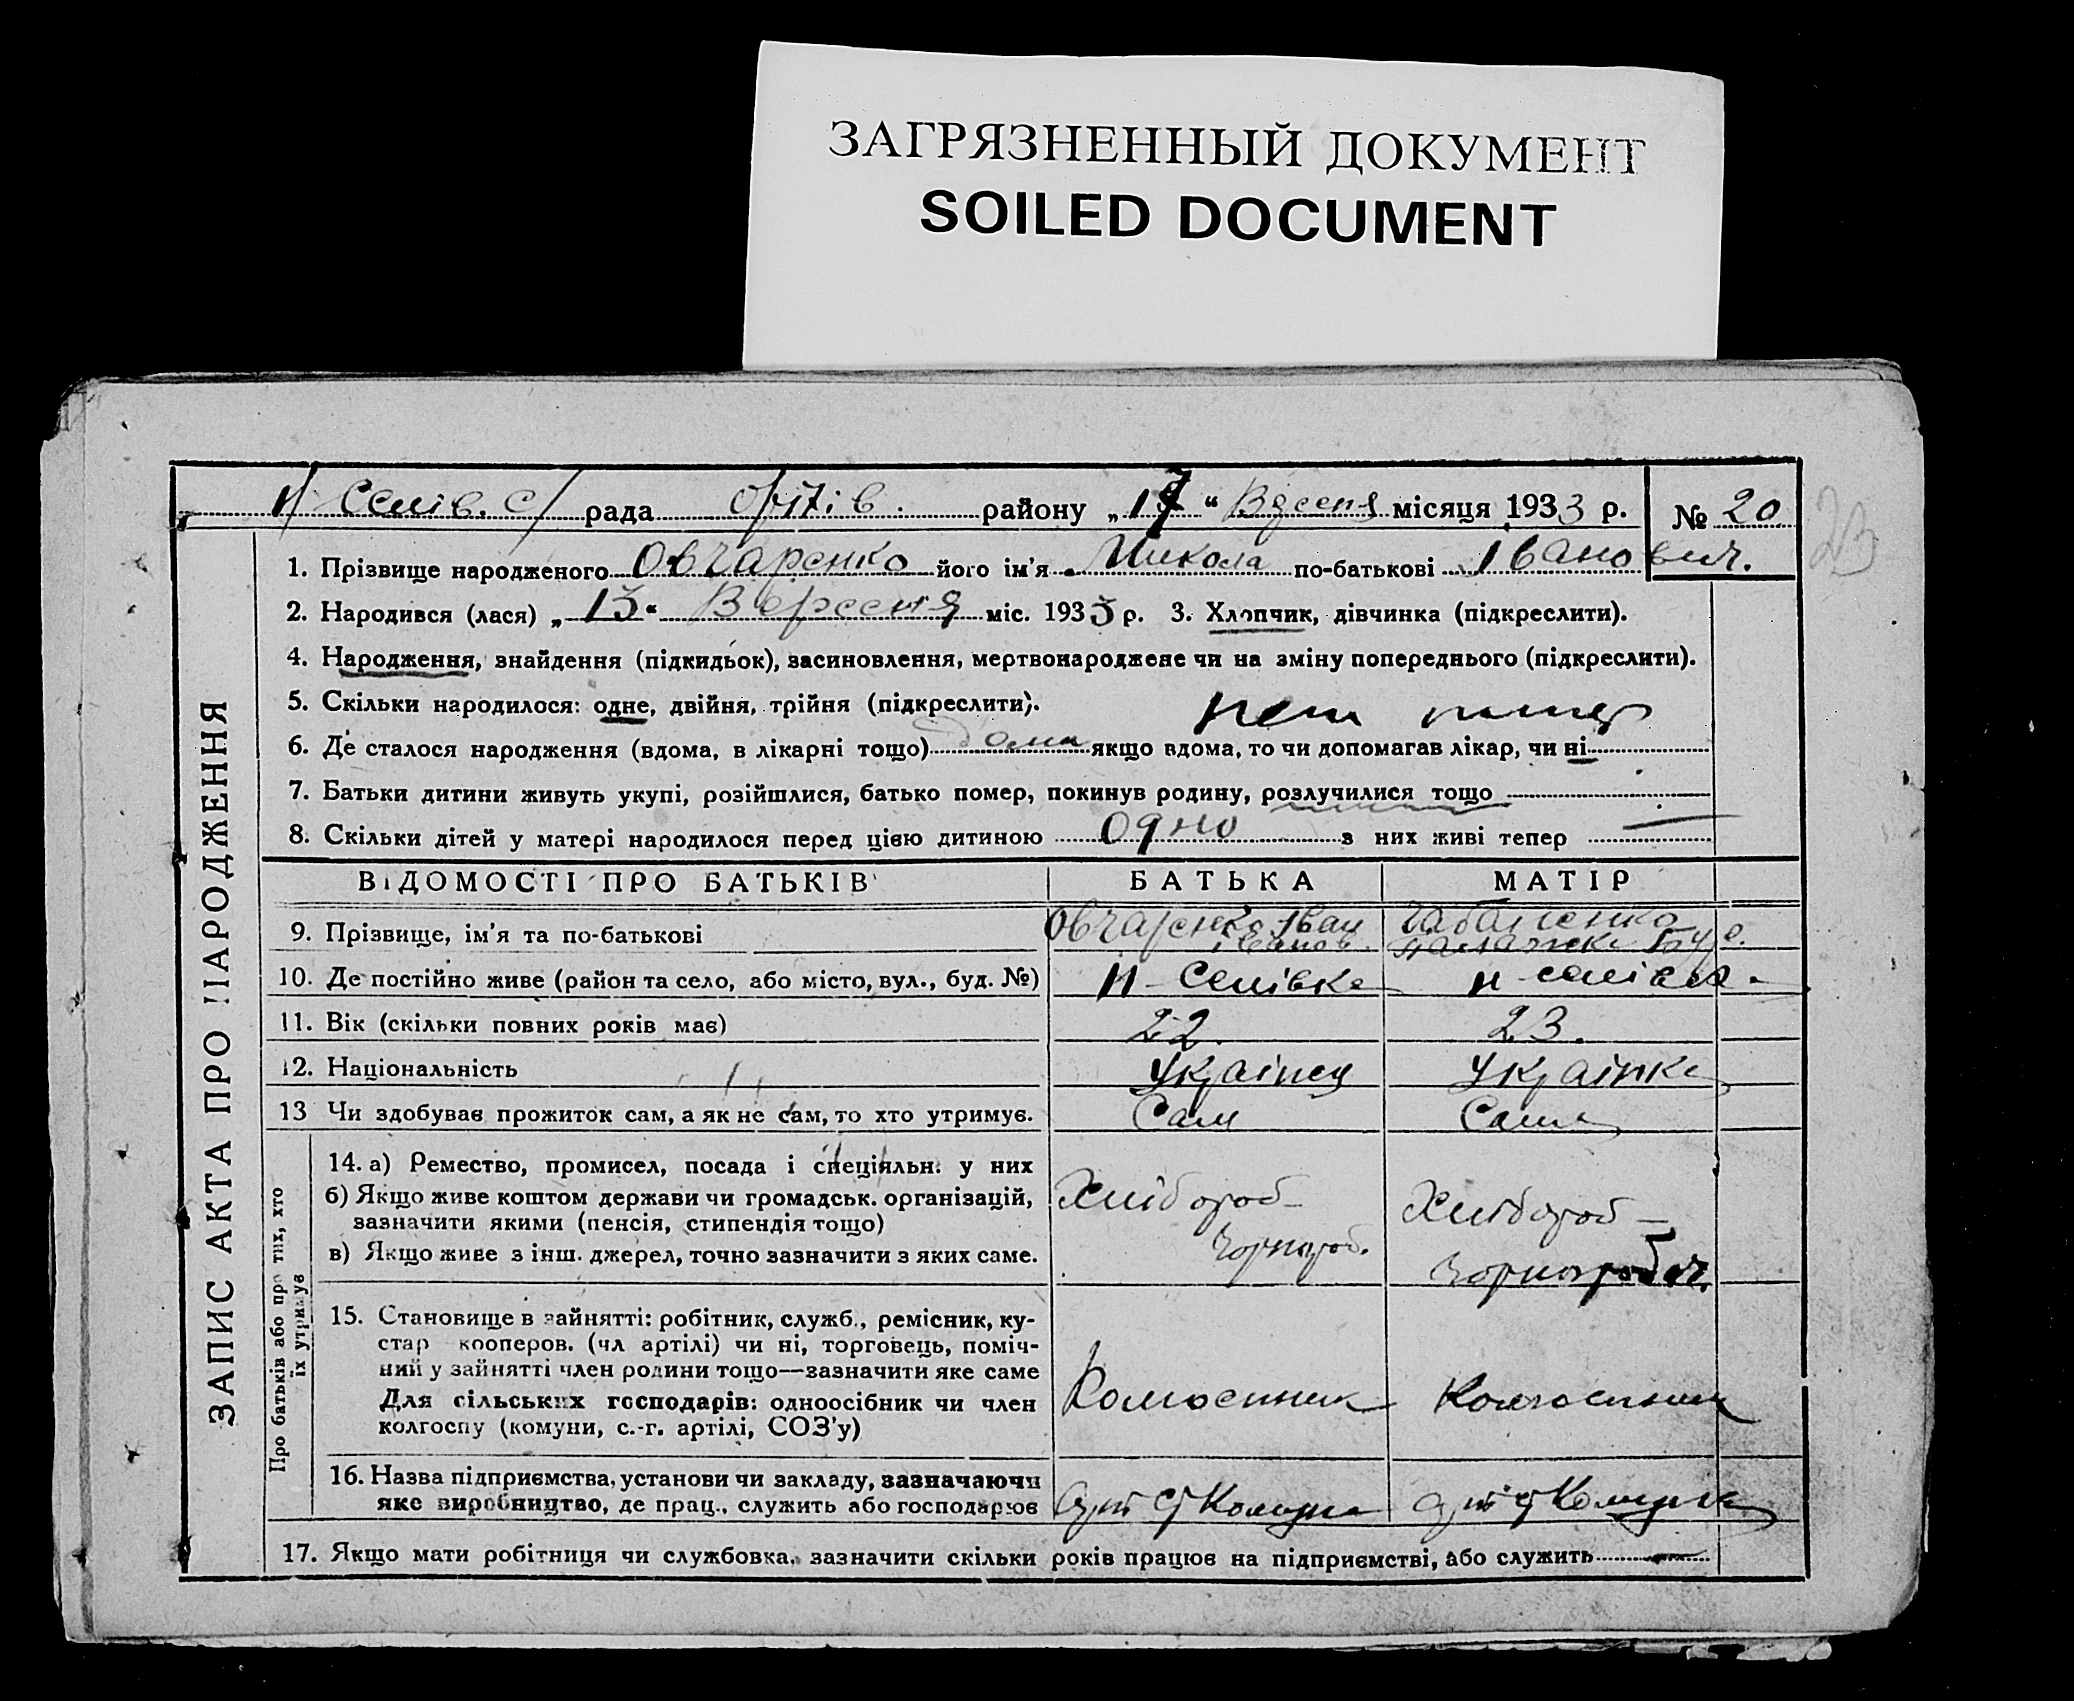 ЗАГРЯЗНЕННЫЙ ДОКУМЕНТ
SOILED DOCUMENT
Н/ Селів. с/ рада района „17“ місяця 1933 р. № 20
ЗАПИС АКТА ПРО НАРОДЖЕННЯ
1. Прізвище народженого Овчаренко його ім'я Микола по-батькові Іванович.
2. Народився (лася) „13“ Вересня міс. 1933 р. 3. Хлопчик, дівчинка (підкреслити).
4. Народження, знайдення (підкидьок), засиновлення, мертвонароджене чи на зміну попереднього (підкреслити).
5. Скільки народилося: одне, двійня, трійня (підкреслити).
6. Де сталося народження (вдома, в лікарні тощо) дома якщо вдома, то чи допомагав лікар, чи ні
7. Батьки дитини живуть укупі, розійшлися, батько помер, покинув родину, розлучилися тощо
8. Скільки дітей у матері народилося перед цією дитиною одно з них живі тепер —
ВІДОМОСТІ ПРО БАТЬКІВ БАТЬКА МАТІР
9. Прізвище, ім'я та по-батькові Овчаренко Іван Іванов.
10. Де постійно живе (район та село, або місто, вул., буд. №) Н-Селівка Н-Селівка
11. Вік (скільки повних років має) 22. 23.
12. Національність Українец Українка
13 Чи здобуває прожиток сам, а як не сам, то хто утримує. Сам Сама
Про батьків або про тих, хто їх утримує
14. а) Ремество, промисел, посада і спеціяльн. у них
б) Якщо живе коштом держави чи громадськ. організацій, Хлібороб- Хлібороб-
зазначити якими (пенсія, стипендія тощо)
в) Якщо живе з інш. джерел, точно зазначити з яких саме. Чорнороб. Чорнороб
15. Становище в зайнятті: робітник, служб., ремісник, ку-
стар кооперов. (чл артілі) чи ні, торговець, поміч-
ний у зайнятті член родини тощо—зазначити яке саме
Для сільських господарів: одноосібник чи член Колгоспник Колгоспник
колгоспу (комуни, с.-г. артілі, СОЗ'у)
16. Назва підприємства, установи чи закладу, зазначаючи
яке виробництво, де прац., служить або господарює
17. Якщо мати робітниця чи службовка, зазначити скільки років працює на підприємстві, або служить —